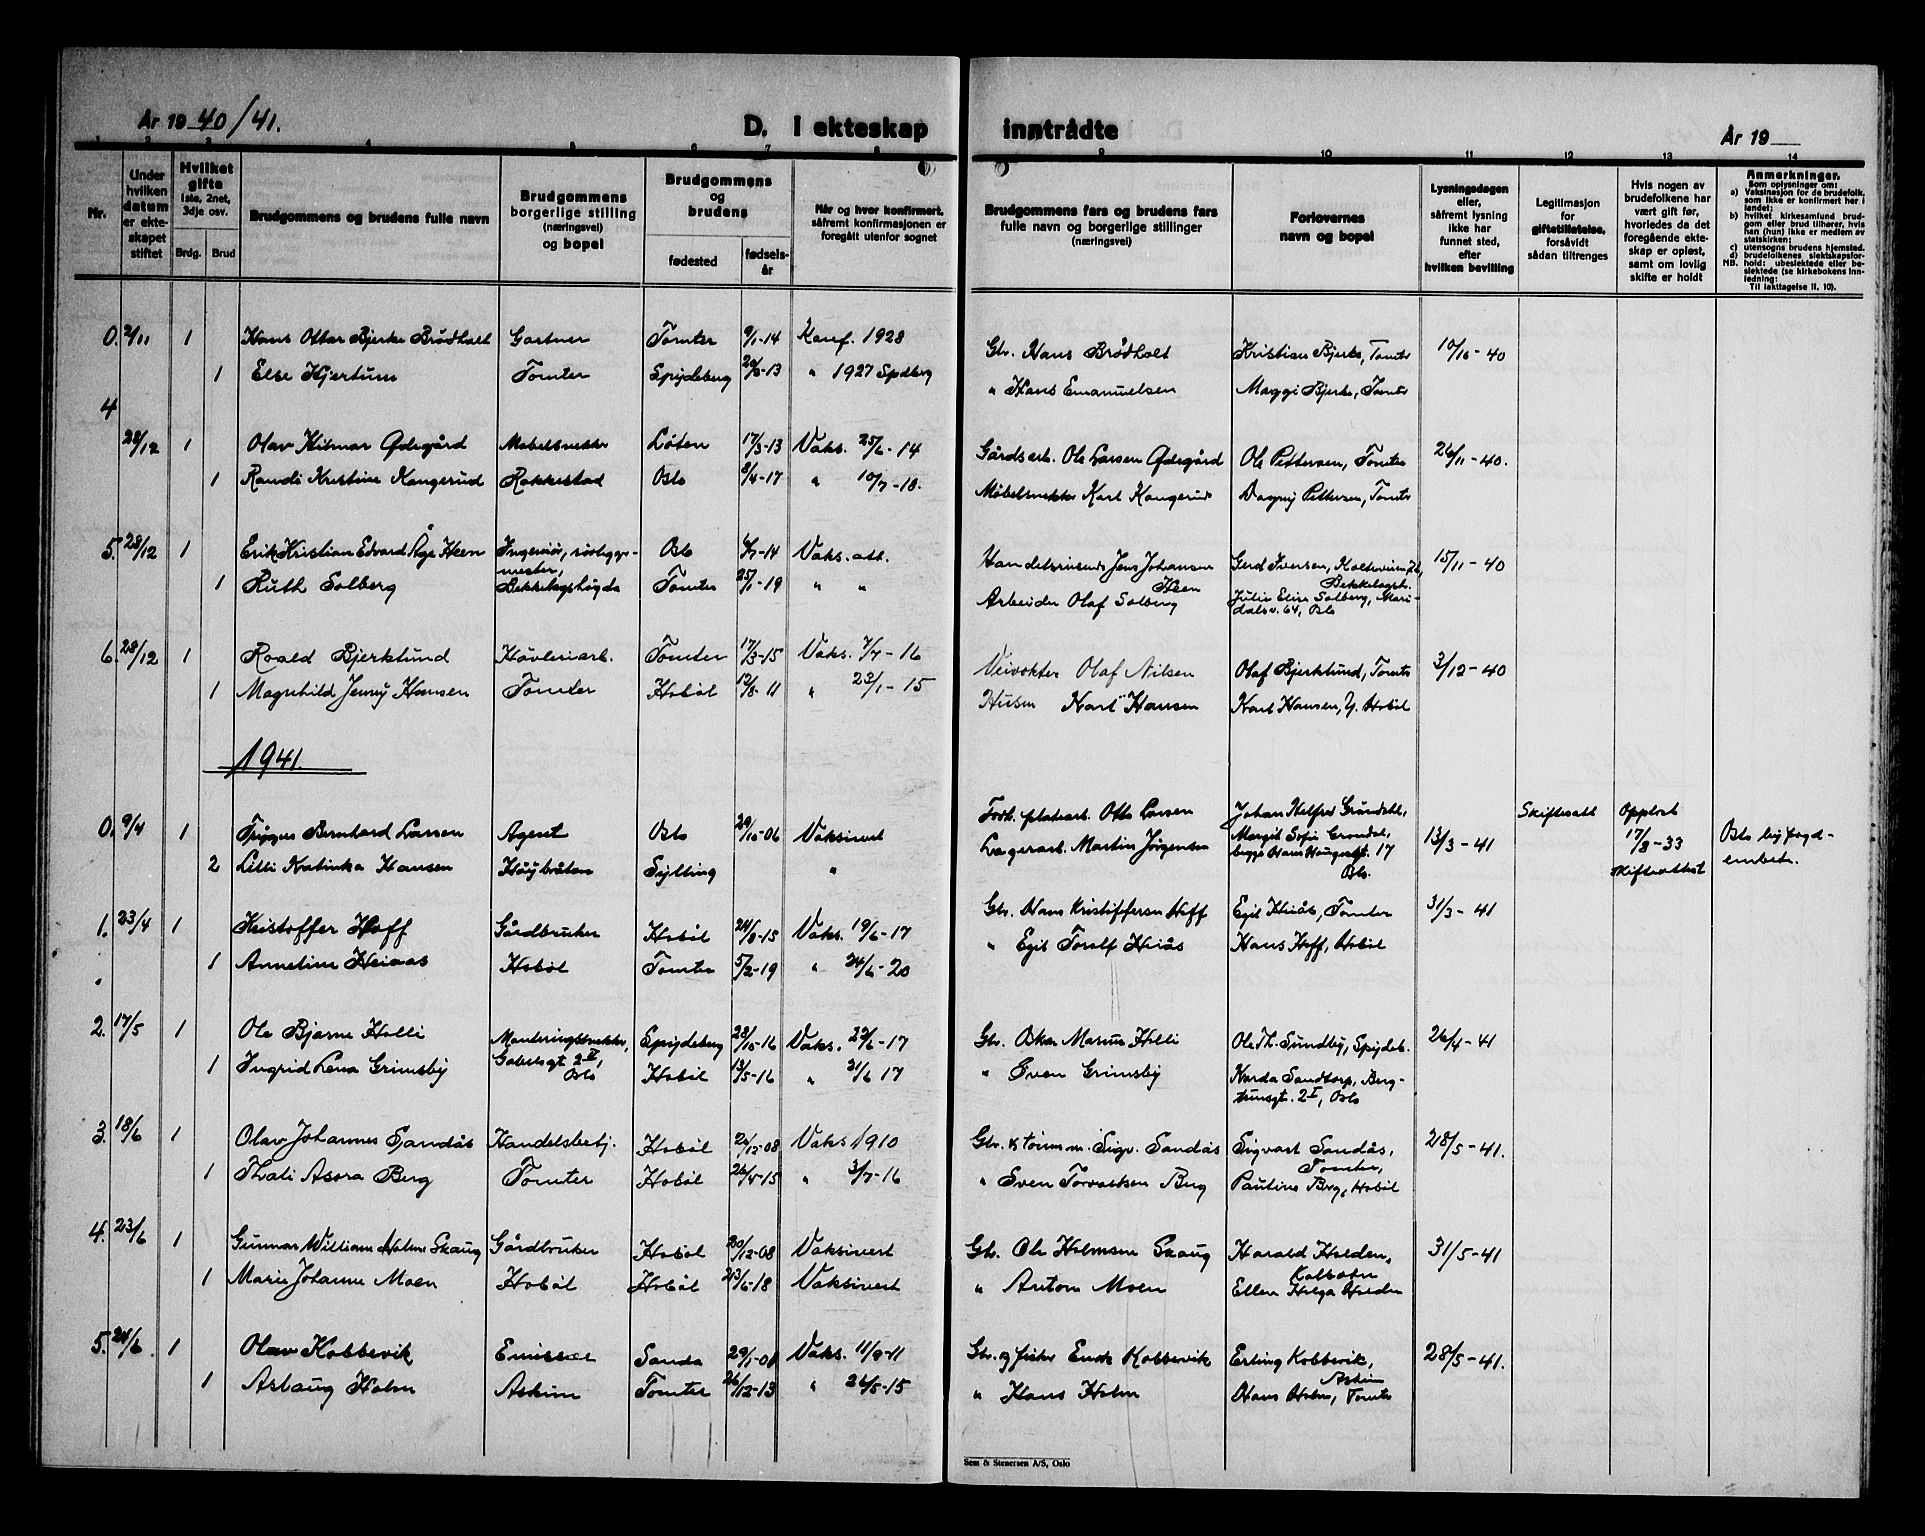 År 1940/41.
D. I ekteskap inntrådte
År 19
1 2 3 4 5 6 7 8 9 10 11 12 13 14
Nr.
Under hvilken datum er ekteskapet stiftet
Hvilket gifte 1ste, 2net, 3dje osv.
Brdg. Brud
Brudgommens og brudens fulle navn
Brudgommens borgerlige stilling (næringsvei) og bopel
Brudgommens og brudens
fødested
fødselsår
Når og hvor konfirmert, såfremt konfirmasjonen er foregått utenfor sognet
Brudgommens fars og brudens fars fulle navn og borgerlige stillinger (næringsvei)
Forlovernes navn og bopel
Lysningsdagen eller, såfremt lysning ikke har funnet sted, efter hvilken bevilling
Legitimasjon for giftetillatelse, forsåvidt sådan tiltrenges
Hvis nogen av brudefolkene har vært gift før, hvorledes da det foregående ekteskap er opløst, samt om lovlig skifte er holdt
Anmerkninger.
Som oplysninger om:
a) Vaksinasjon for de brudefolk, som ikke er konfirmert her i landet;
b) hvilket kirkesamfund brudgom eller brud tilhører, hvis han (hun) ikke er medlem av statskirken;
c) utensogns brudens hjemsted.
d) brudefolkenes slektskapsforhold: ubeslektede eller beslektede (se kirkebokens innledning:
NB. Til iakttagelse II. 10).
0. 2/11 1 Hans Ottar Bjerke Brødholt Gartner Tomter 9/1-14 Konf. 1928 Gbr. Hans Brødholt Kristian Bjerke, Tomter 10/10-40
1 Else Hjertum Tomter Spydeberg 20/5-13 " 1927 Spdberg " Hans Emanuelsen Maggi Bjerke, Tomter
4
28/12 1 Olav Hilmar Ødegård Møbelsnekker Løten 17/3-13 Vaks. 25/6-14 Gårdsarb. Ole Larsen Ødegård Ole Pettersen, Tomter 26/11-40.
1 Randi Kristine Haugerud Rakkestad Oslo 8/4-17 " 10/7-18. Møbelsnekker Karl Haugerud Dagny Pettersen, Tomter
5. 28/12 1 Erik Kristian Edvard Åge Heen Ingeniør, rørleggermester, Oslo 6/7-14 Vaks. att. Handelsreisende Jens Johansen Heen Gerd Iversen, Bekkelagsh. 15/11-40
1 Ruth Solberg Bekkelagshøgda Tomter 25/1-19 " " Arbeider Olaf Solberg Julie Elise Solberg, Maridalsv. 64, Oslo
6. 28/12 1 Roald Bjerklund Høvleriarb. Tomter 17/3-15 Vaks. 7/7-16 Veivokter Olaf Nilsen Olaf Bjerklund, Tomter 3/12-40
1 Magnhild Jenny Hansen Tomter Hobøl 12/8-11 " 23/1-15 Karl Hansen Karl Hansen, Y. Hobøl
1941.
0. 9/4 1 Trygve Bernhard Larsen Agent Oslo 29/10-06 Vaksinert Otto Larsen Johan Helfred Grøndahl, Margit Sofie Grøndal, begge Hans Haugesgt. 17 Oslo. 13/3-41 Skifteatt Oppløst 17/3-33 Skifteattest Oslo byfogdembete.
2 Lilli Katinka Hansen Høybråten Sylling " Lagerarb. Martin Jørgensen
1. 23/4 1 Kristoffer Hoff Gårdbruker Hobøl 24/8-15 Vaks. 19/6-17 Gbr. Hans Kristiffersen Hoff Egil Heiås, Tomter 31/3-41
1 Anneline Heiaas Hobøl Tomter 5/2-19 " 24/6-20 " Egil Toralf Heiås Hans Hoff, Hobøl
2. 17/5 1 Ole Bjarne Holli Monteringssnekker, Gabelsgt 2 II, Oslo Spydeberg 28/10-16 Vaks. 29/6-17 Gbr. Oskar Marius Holli Ole Th. Sundby, Spydeb. 26/4-41
1 Ingrid Lena Grimsby Hobøl 13/5-16 " 21/6 17 " Sven Grimsby Sandtorp, Oslo
3. 18/6 1 Olav Johannes Sandås Handelsbetj. Hobøl 20/12-08 Vaks 1910 Gbr. & tømm. Sigv. Sandås Sigvart Sandås, Tomter, 28/5-41.
1 Thali Asora Berg Tomter Hobøl 26/4-15 " 3/7-16 " Sven Torvaldsen Berg Pauline Berg, Hobøl
4. 23/6 1 Gunnar William Holmen Skaug Gårdbruker Hobøl 20/12-08 Vaksinert Gbr. Ole Holmsen Skaug Harald Holden, Kolbotn 31/5-41
1 Marie Johanne Moen Hobøl Hobøl 23/6-18 Vaksinert " Anton Moen Ellen Helga Holden
5. 24/6 1 Olav Kobbevik Emissær Sanda 29/1-08 Vaks. 11/9-11 Gbr. og fisker Kobbevik Erling Kobbevik, Askim 28/5-41.
1 Aslaug Holm Askim Tomter 26/12-13 " 26/5-15 " Hans Holm Hans Holm, Tomter
Sem & Stenersen A/S, Oslo